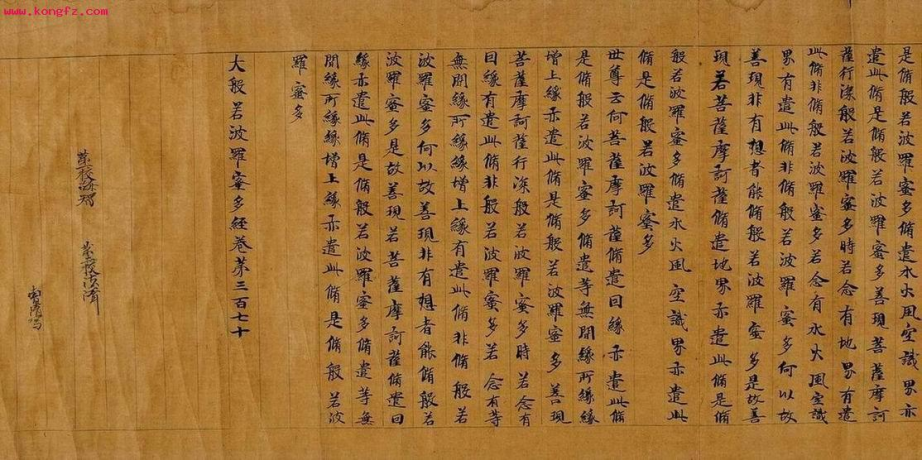 www.kongfz.com
是脩般若波羅蜜多脩遣水火風空識界亦
遣此脩是脩般若波羅蜜多善現菩薩摩訶
薩行深般若波羅蜜多時若念有地界有遣
此脩非脩般若波羅蜜多若念有水火風空識
界有遣此脩非脩般若波羅蜜多何以故
善現非有想者能脩般若波羅蜜多是故善
現若菩薩摩訶薩脩遣地界亦遣此脩是脩
般若波羅蜜多脩遣水火風空識界亦遣此
脩是脩般若波羅蜜多
世尊云何菩薩摩訶薩脩遣因緣亦遣此脩
是脩般若波羅蜜多脩遣等無間緣所緣緣
增上緣亦遣此脩是脩般若波羅蜜多善現
菩薩摩訶薩行深般若波羅蜜多時若念有
因緣有遣此脩非般若波羅蜜多若念有等
無間緣所緣緣增上緣有遣此脩非脩般若
波羅蜜多何以故善現非有想者能脩般若
波羅蜜多是故善現若菩薩摩訶薩脩遣因
緣亦遣此脩是脩般若波羅蜜多脩遣等無
間緣所緣緣增上緣亦遣此脩是脩般若波
羅蜜多
大般若波羅蜜多經卷第三百七十